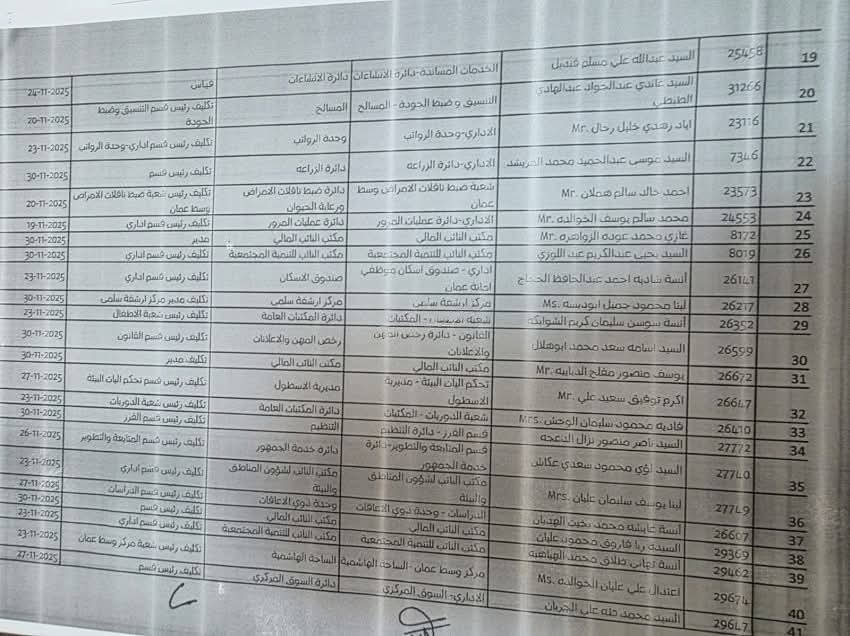 19 25458 السيد عبدالله علي مسلم قنديل الخدمات المساندة-دائرة الانشاءات دائرة الانشاءات قياس 24-11-2025
20 31266 السيد غاندي عبدالجواد عبدالهادي الطيطي التنسيق و ضبط الجودة - المسالخ المسالخ تكليف رئيس قسم التنسيق وضبط الجودة 20-11-2025
21 23116 اياد رهدي خليل رحال .Mr الاداري-وحدة الرواتب وحدة الرواتب تكليف رئيس قسم اداري-وحدة الرواتب 23-11-2025
22 7346 السيد موسى عبدالحميد محمد الاداري-دائرة الزراعه دائرة الزراعه تكليف رئيس قسم 30-11-2025
23 23573 احمد خالد سالم هملان .Mr شعبة ضبط ناقلات الامراض وسط عمان دائرة ضبط ناقلات الامراض ورعاية الحيوان تكليف رئيس شعبة ضبط ناقلات الامراض وسط عمان 20-11-2025
24 24553 محمد سالم يوسف الخوالده .Mr الاداري-دائرة عمليات المرور دائرة عمليات المرور تكليف رئيس قسم اداري 19-11-2025
25 8172 غازي محمد عوده الزواهره .Mr مكتب النائب المالي مكتب النائب المالي مدير 30-11-2025
26 8019 السيد يحيى عبدالكريم عبد اللوزي مكتب النائب للتنمية المجتمعية مكتب النائب للتنمية المجتمعية تكليف رئيس قسم اداري 30-11-2025
27 26141 آنسة شاديه احمد عبدالحافظ الحجاج اداري - صندوق اسكان موظفي امانة عمان صندوق الاسكان تكليف رئيس قسم اداري 23-11-2025
28 26217 لينا محمود جميل ابودبسه .Ms مركز ارشفة سلمى مركز ارشفة سلمى تكليف مدير مركز ارشفة سلمى 30-11-2025
29 26352 آنسة سوسن سليمان كريم الشوابكه شعبة - المكتبات دائرة المكتبات العامة تكليف رئيس شعبة الاطفال 23-11-2025
30 26599 السيد اسامه سعد محمد ابوهلال القانون - دائرة رخص المهن والاعلانات رخص المهن والاعلانات تكليف رئيس قسم القانون 30-11-2025
31 26672 يوسف منصور مفلح الدبايبه .Mr مكتب النائب المالي مكتب النائب المالي تكليف مدير 30-11-2025
32 26647 اكرم توفيق سعيد علي .Mr تحكم اليات البيئة - مديرية الاسطول مديرية الاسطول تكليف رئيس قسم تحكم اليات البيئة 27-11-2025
33 26410 فاديه محمود سليمان الوحش .Mrs شعبة الدوريات - المكتبات دائرة المكتبات العامة تكليف رئيس شعبة الدوريات 23-11-2025
34 27772 السيد ناصر منصور نزال الدعجه قسم الفرز - دائرة التنظيم التنظيم تكليف رئيس قسم الفرز 30-11-2025
35 27740 السيد لؤي محمود سعدي عكاش قسم المتابعة والتطوير-دائرة خدمة الجمهور دائرة خدمة الجمهور تكليف رئيس قسم المتابعة والتطوير 26-11-2025
36 27749 لينا يوسف سليمان عليان .Mrs مكتب النائب لشؤون المناطق والبيئة مكتب النائب لشؤون المناطق والبيئة تكليف رئيس قسم اداري 23-11-2025
37 26607 آنسة عايشه محمد بخيت الهديان الدراسات - وحدة ذوي الاعاقات وحدة ذوي الاعاقات تكليف رئيس قسم الدراسات 27-11-2025
38 29369 السيدة ربا فاروق محمود عليان مكتب النائب المالي مكتب النائب المالي تكليف رئيس قسم 30-11-2025
39 29462 آنسة تهاني طلاق محمد الهباهبه مكتب النائب للتنمية المجتمعية مكتب النائب للتنمية المجتمعية تكليف رئيس قسم اداري 23-11-2025
40 29674 اعتدال علي عليان الخوالده .Ms مركز وسط عمان - الساحة الهاشمية الساحة الهاشمية تكليف رئيس شعبة مركز وسط عمان 23-11-2025
41 29647 السيد محمد طه علي الاداري - السوق المركزي دائرة السوق المركزي تكليف رئيس قسم 27-11-2025